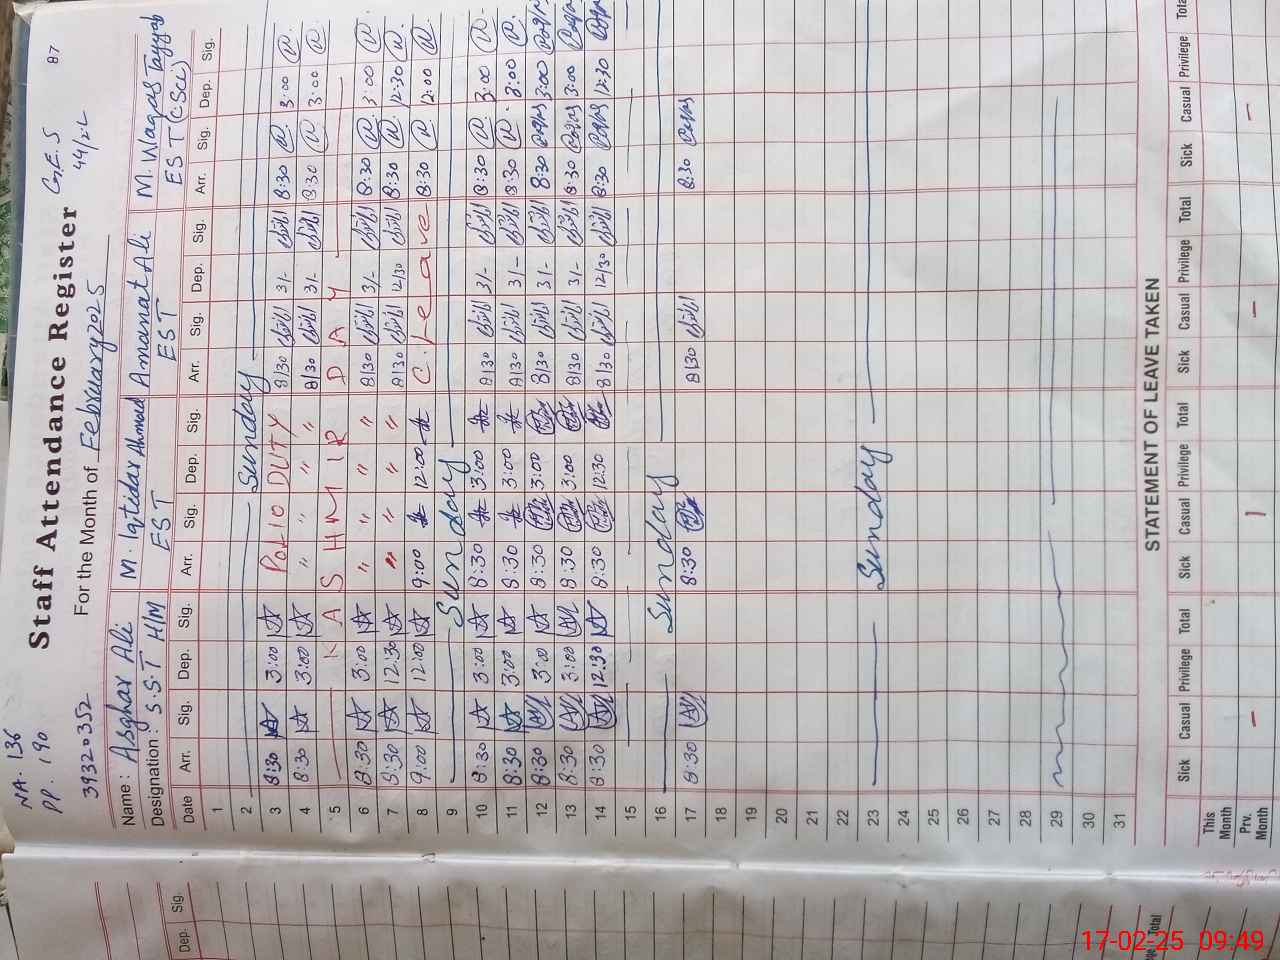 NA. 136
PP. 190
39320352
Staff Attendance Register
G.E.S
44/2-L
87
For the Month of February 2025
Name: Asghar Ali M. Iqtidar Ahmad Amanat Ali M. Waqas Tayyab
Designation: S.S.T H/M EST EST EST (C.Sci)
Date Arr. Sig. Dep. Sig. Arr. Sig. Dep. Sig. Arr. Sig. Dep. Sig. Arr. Sig. Dep. Sig.
1
2 Sunday
3 8:30 3:00 POLIO DUTY 8/30 3/- 8:30 3:00
4 8:30 3:00 " " " " 8/30 3/- 8:30 3:00
5 KASHMIR DAY
6 8:30 3:00 " " " " 8/30 3/- 8:30 3:00
7 8:30 12:30 " " " " 8/30 12/30 8:30 12:30
8 9:00 12:00 9:00 12:00 C. Leave 8:30 12:00
9 Sunday
10 8:30 3:00 8:30 3:00 8/30 3/- 8:30 3:00
11 8:30 3:00 8:30 3:00 8/30 3/- 8:30 3:00
12 8:30 3:00 8:30 3:00 8/30 3/- 8:30 3:00
13 8:30 3:00 8:30 3:00 8/30 3/- 8:30 3:00
14 8:30 12:30 8:30 12:30 8/30 12/30 8:30 12:30
15
16 Sunday
17 8:30 8:30 8/30 8:30
18
19
20
21
22
23 Sunday
24
25
26
27
28
29
30
31
STATEMENT OF LEAVE TAKEN
Sick Casual Privilege Total Sick Casual Privilege Total Sick Casual Privilege Total Sick Casual Privilege Total
This Month
Prv. Month 1 1 1 1
Dep. Sig.
Total
17-02-25 09:49